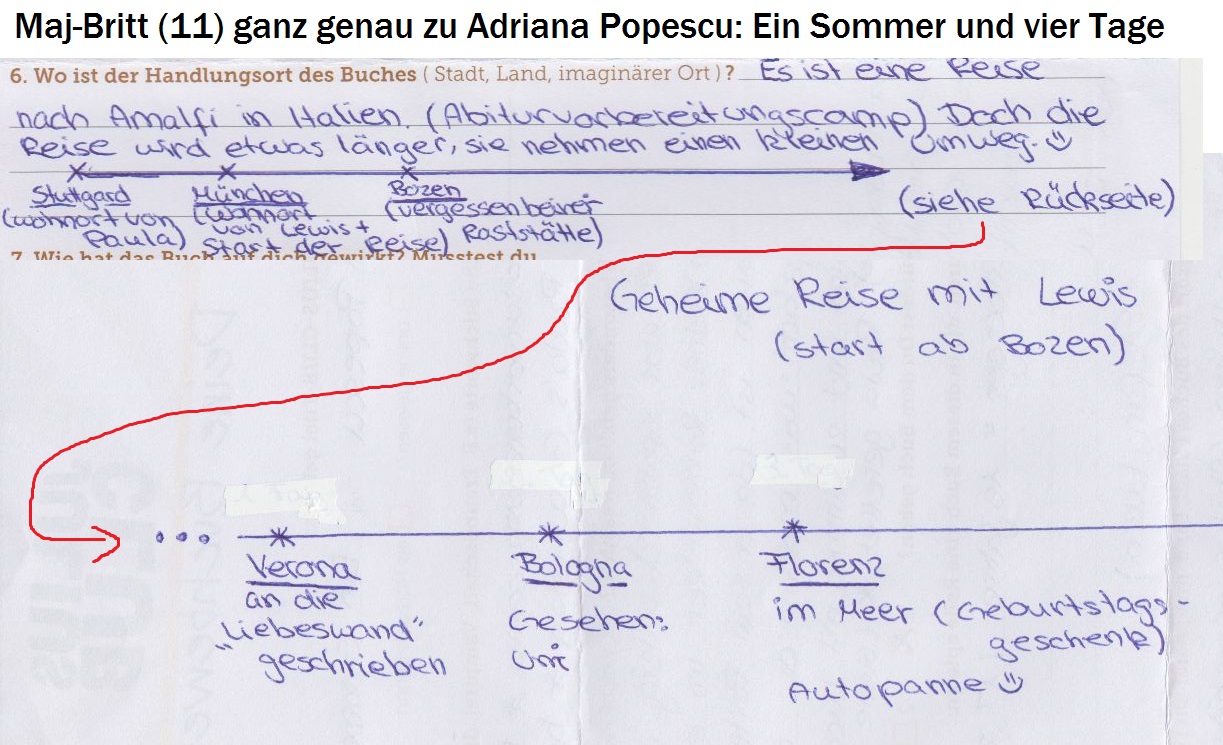 Maj-Britt (11) ganz genau zu Adriana Popescu: Ein Sommer und vier Tage
6. Wo ist der Handlungsort des Buches ( Stadt, Land, imaginärer Ort ) ? Es ist eine Reise
nach Amalfi in Italien. (Abiturvorbereitungscamp) Doch die
Reise wird etwas länger, sie nehmen einen kleinen Umweg. ☺
Stuttgard München Bozen
(wohnort von (wohnort (vergessen beiner (siehe Rückseite)
Paula) von Lewis + Raststätte)
Start der Reise)
7. Wie hat das Buch auf dich gewirkt? Musstest du
Geheime Reise mit Lewis
(start ab Bozen)
Verona Bologna Florenz
an die Gesehen: im Meer (Geburtstags-
"Liebeswand" Uni geschenk)
geschrieben
Autopanne ☺